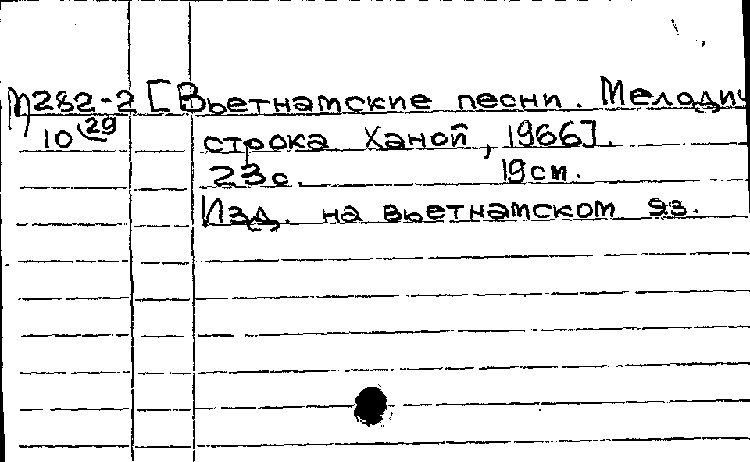 М282-2 [Вьетнамские песни. Мелодич
10 29 строка Ханой, 1966].
23с. 19см.
Изд. на вьетнамском яз.